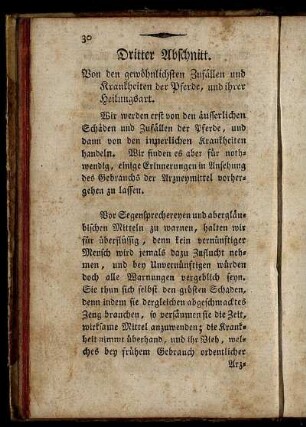 30
Dritter Abschnitt.
Von den gewöhnlichsten Zufällen und
Krankheiten der Pferde, und ihrer
Heilungsart.
Wir werden erst von den äusserlichen
Schäden und Zufällen der Pferde, und
dann von den innerlichen Krankheiten
handeln. Wir finden es aber für noth-
wendig, einige Erinnerungen in Ansehung
des Gebrauchs der Arzneymittel vorher-
gehen zu lassen.
Vor Segensprechereyen und abergläu-
bischen Mitteln zu warnen, halten wir
für überflüssig, denn kein vernünftiger
Mensch wird jemals dazu Zuflucht neh-
men, und bey Unvernünftigen würden
doch alle Warnungen vergeblich seyn.
Sie thun sich selbst den grösten Schaden,
denn indem sie dergleichen abgeschmacktes
Zeug brauchen, so versäumen sie die Zeit,
wirksame Mittel anzuwenden; die Krank-
heit nimmt überhand, und ihr Vieh, wel-
ches bey frühem Gebrauch ordentlicher
Arz-